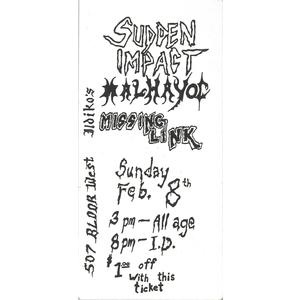 SUDDEN
IMPACT
MALHAVOC
MISSING
LINK.
Ildiko's
507 BLOOR West
Sunday
Feb. 8th
3pm — All age
8pm — I.D.
$1.00 off
with this
ticket